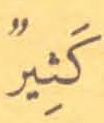 كَثِيرٌ